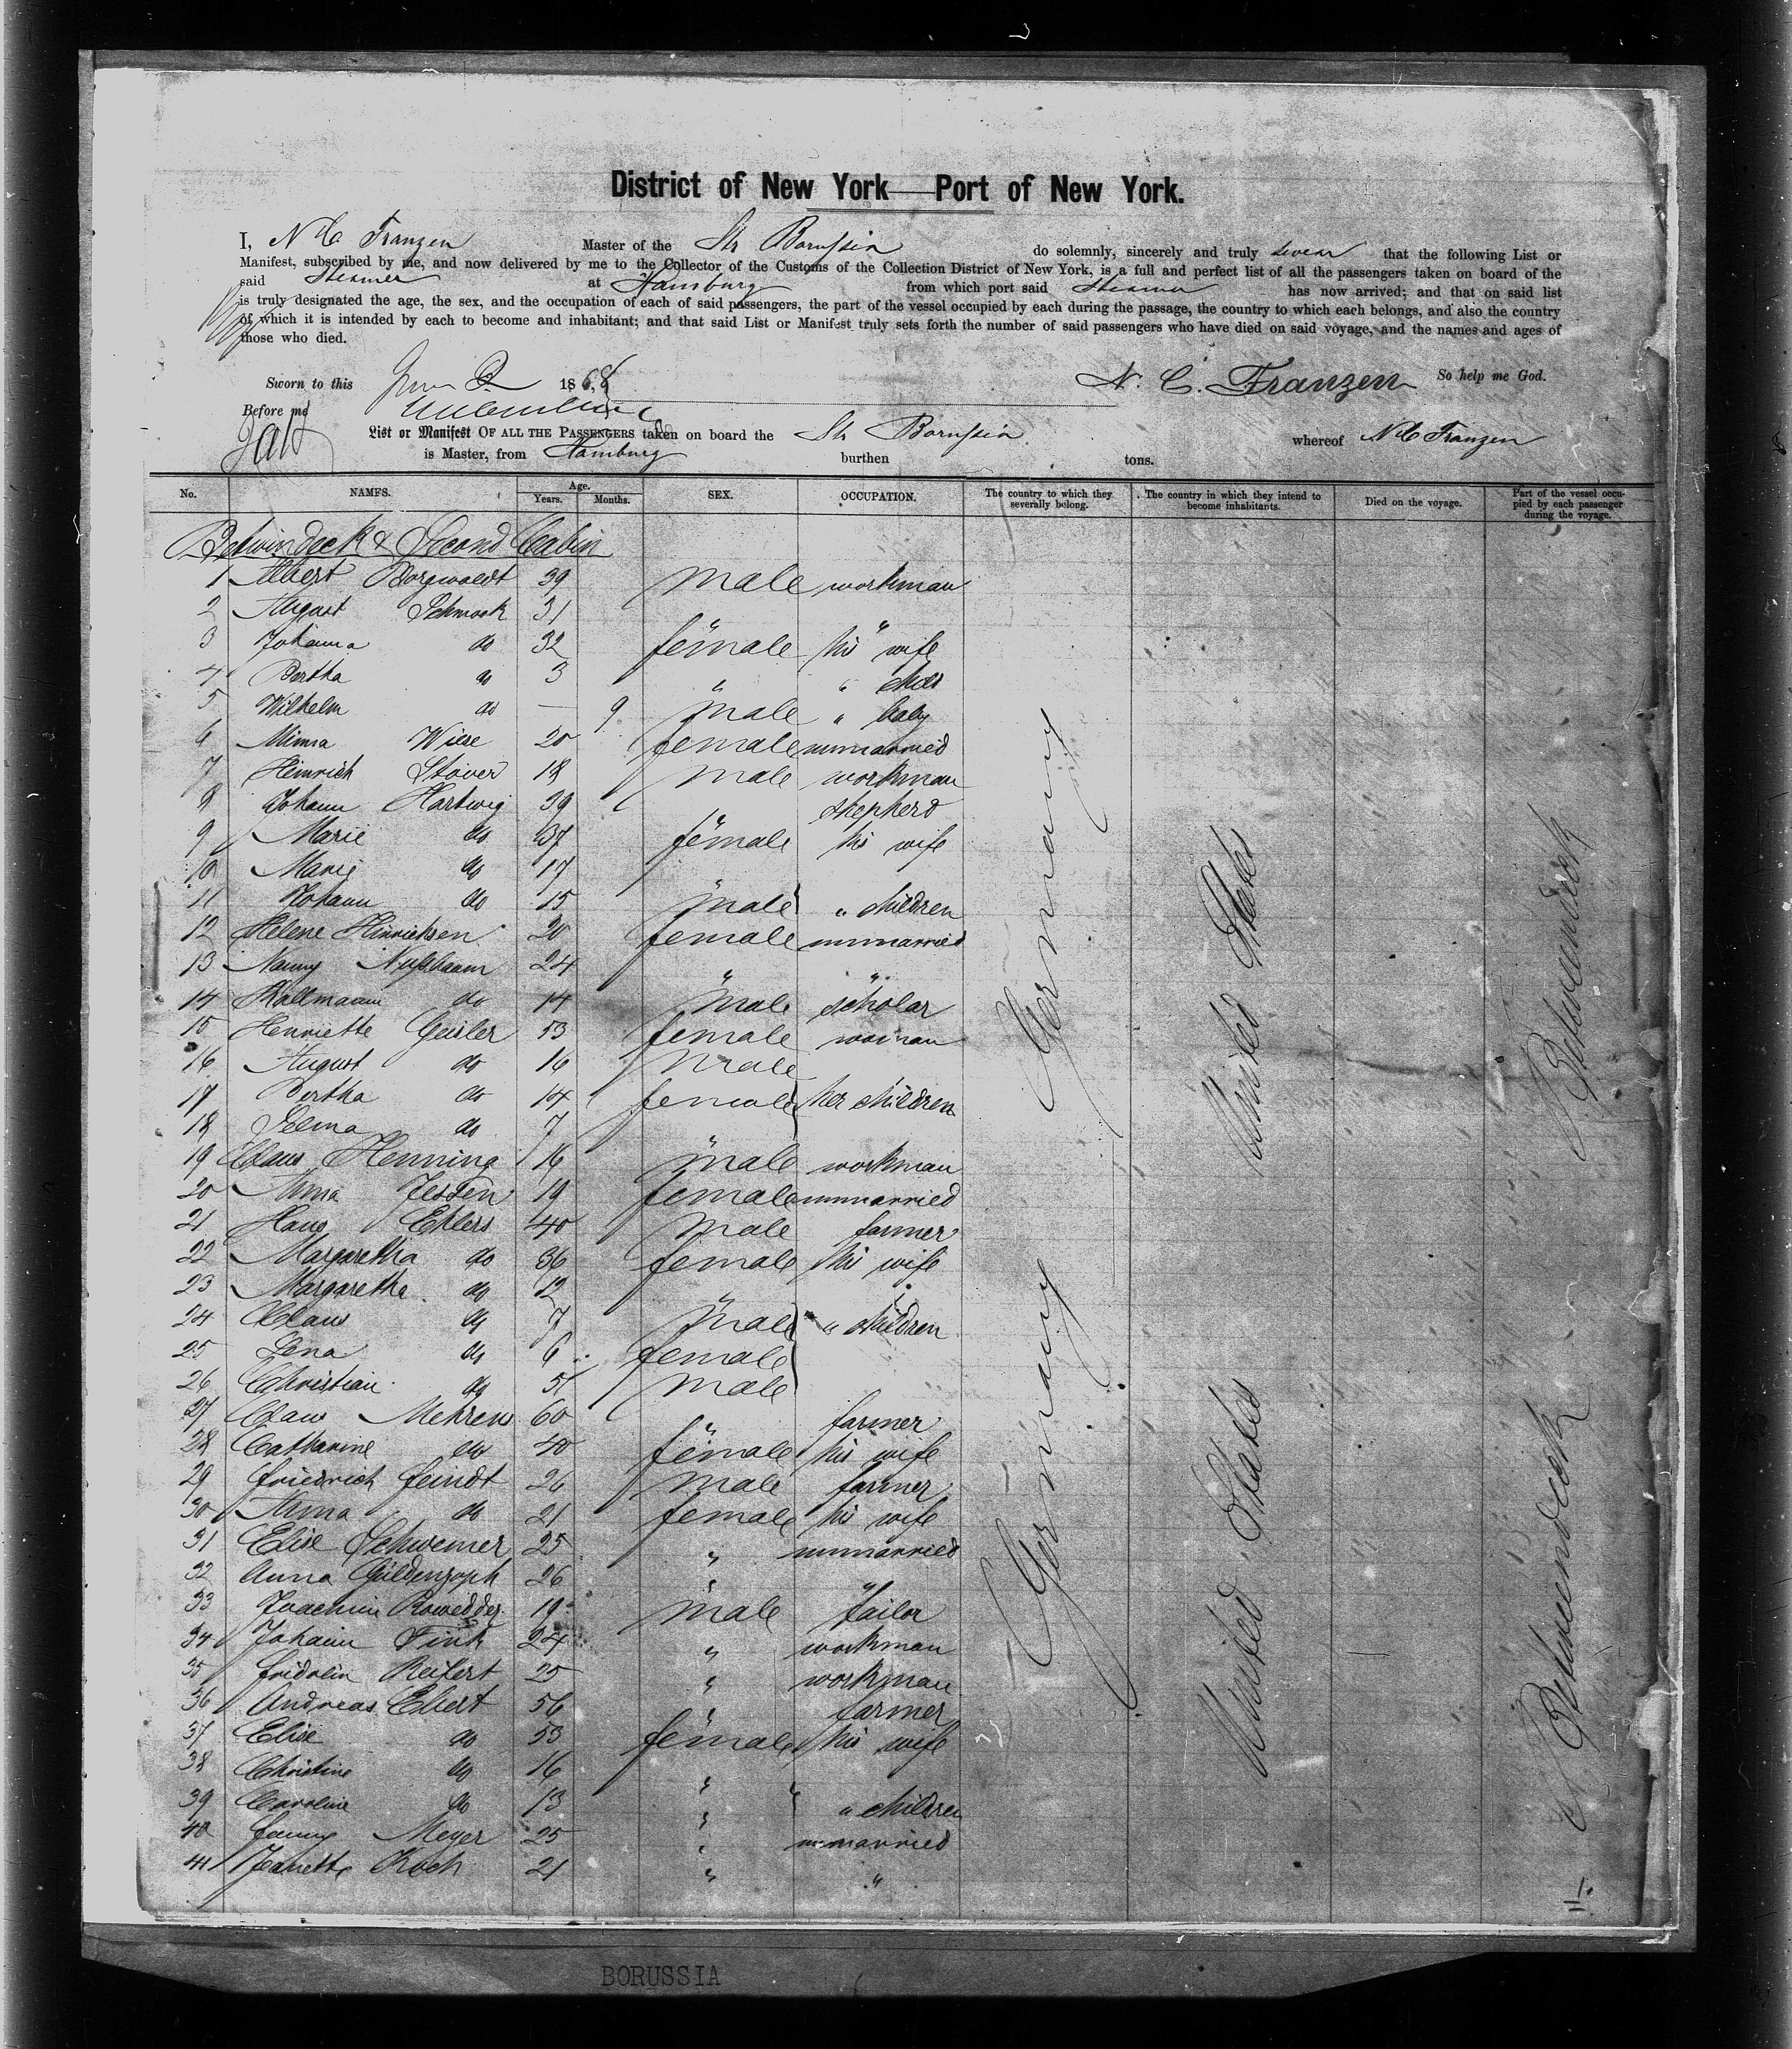 District of New York—Port of New York.
I, N C Franzen Master of the Str Borussia do solemnly, sincerely and truly swear that the following List or
Manifest, subscribed by me, and now delivered by me to the Collector of the Customs of the Collection District of New York, is a full and perfect list of all the passengers taken on board of the
said Steamer at Hamburg from which port said Steamer has now arrived; and that on said list
is truly designated the age, the sex, and the occupation of each of said passengers, the part of the vessel occupied by each during the passage, the country to which each belongs, and also the country
of which it is intended by each to become and inhabitant; and that said List or Manifest truly sets forth the number of said passengers who have died on said voyage, and the names and ages of
those who died.
Sworn to this June 2 1868 N. C. Franzen So help me God.
Before me
List or Manifest OF ALL THE PASSENGERS taken on board the Str Borussia whereof N C Franzen
is Master, from Hamburg burthen tons.
No. NAMES. Age. Years. Months. SEX. OCCUPATION. The country to which they severally belong. The country in which they intend to become inhabitants. Died on the voyage. Part of the vessel occupied by each passenger during the voyage.
Betwindeck & Second Cabin
1 Albert Borgwoldt 39 male workman
2 August Schmook 31 " "
3 Johanna do 32 female his wife
4 Bertha do 3 " " child
5 Wilhelm do — 9 male " baby
6 Minna Wiese 20 female unmarried
7 Heinrich Stöver 18 male workman
8 Johann Hartwig 39 " shepherd
9 Marie do 37 female his wife
10 Marie do 17 "
11 Johann do 15 male " children
12 Helene Hinrichsen 20 female unmarried
13 Nanny Nußbaum 24 " "
14 Kallmann do 14 male scholar
15 Henriette Geisler 53 female woman
16 August do 16 male
17 Bertha do 14 female her children
18 Selma do 7 "
19 Claus Henning 16 male workman
20 Anna Jessen 19 female unmarried
21 Hans Ehlers 40 male farmer
22 Margaretha do 36 female his wife
23 Margaretha do 12 "
24 Claus do 7 male " children
25 Lena do 6 female
26 Christian do 5 male
27 Claus Mehrens 60 " farmer
28 Catharine do 40 female his wife
29 Friedrich Feindt 26 male farmer
30 Anna do 21 female his wife
31 Elise Schwemer 25 " unmarried
32 Anna Güldenzoph 26 " "
33 Joachim Rowedder 19 male tailor
34 Johann Fink 24 " workman
35 Fridolin Reifert 25 " workman
36 Andreas Ebert 56 " farmer
37 Elise do 53 female his wife
38 Christine do 16 " "
39 Caroline do 13 " " children
40 Fanny Meyer 25 " unmarried
41 Jeanette Koch 21 " "
Germany
Germany
United States
United States
Betweendeck
Betweendeck
BORUSSIA